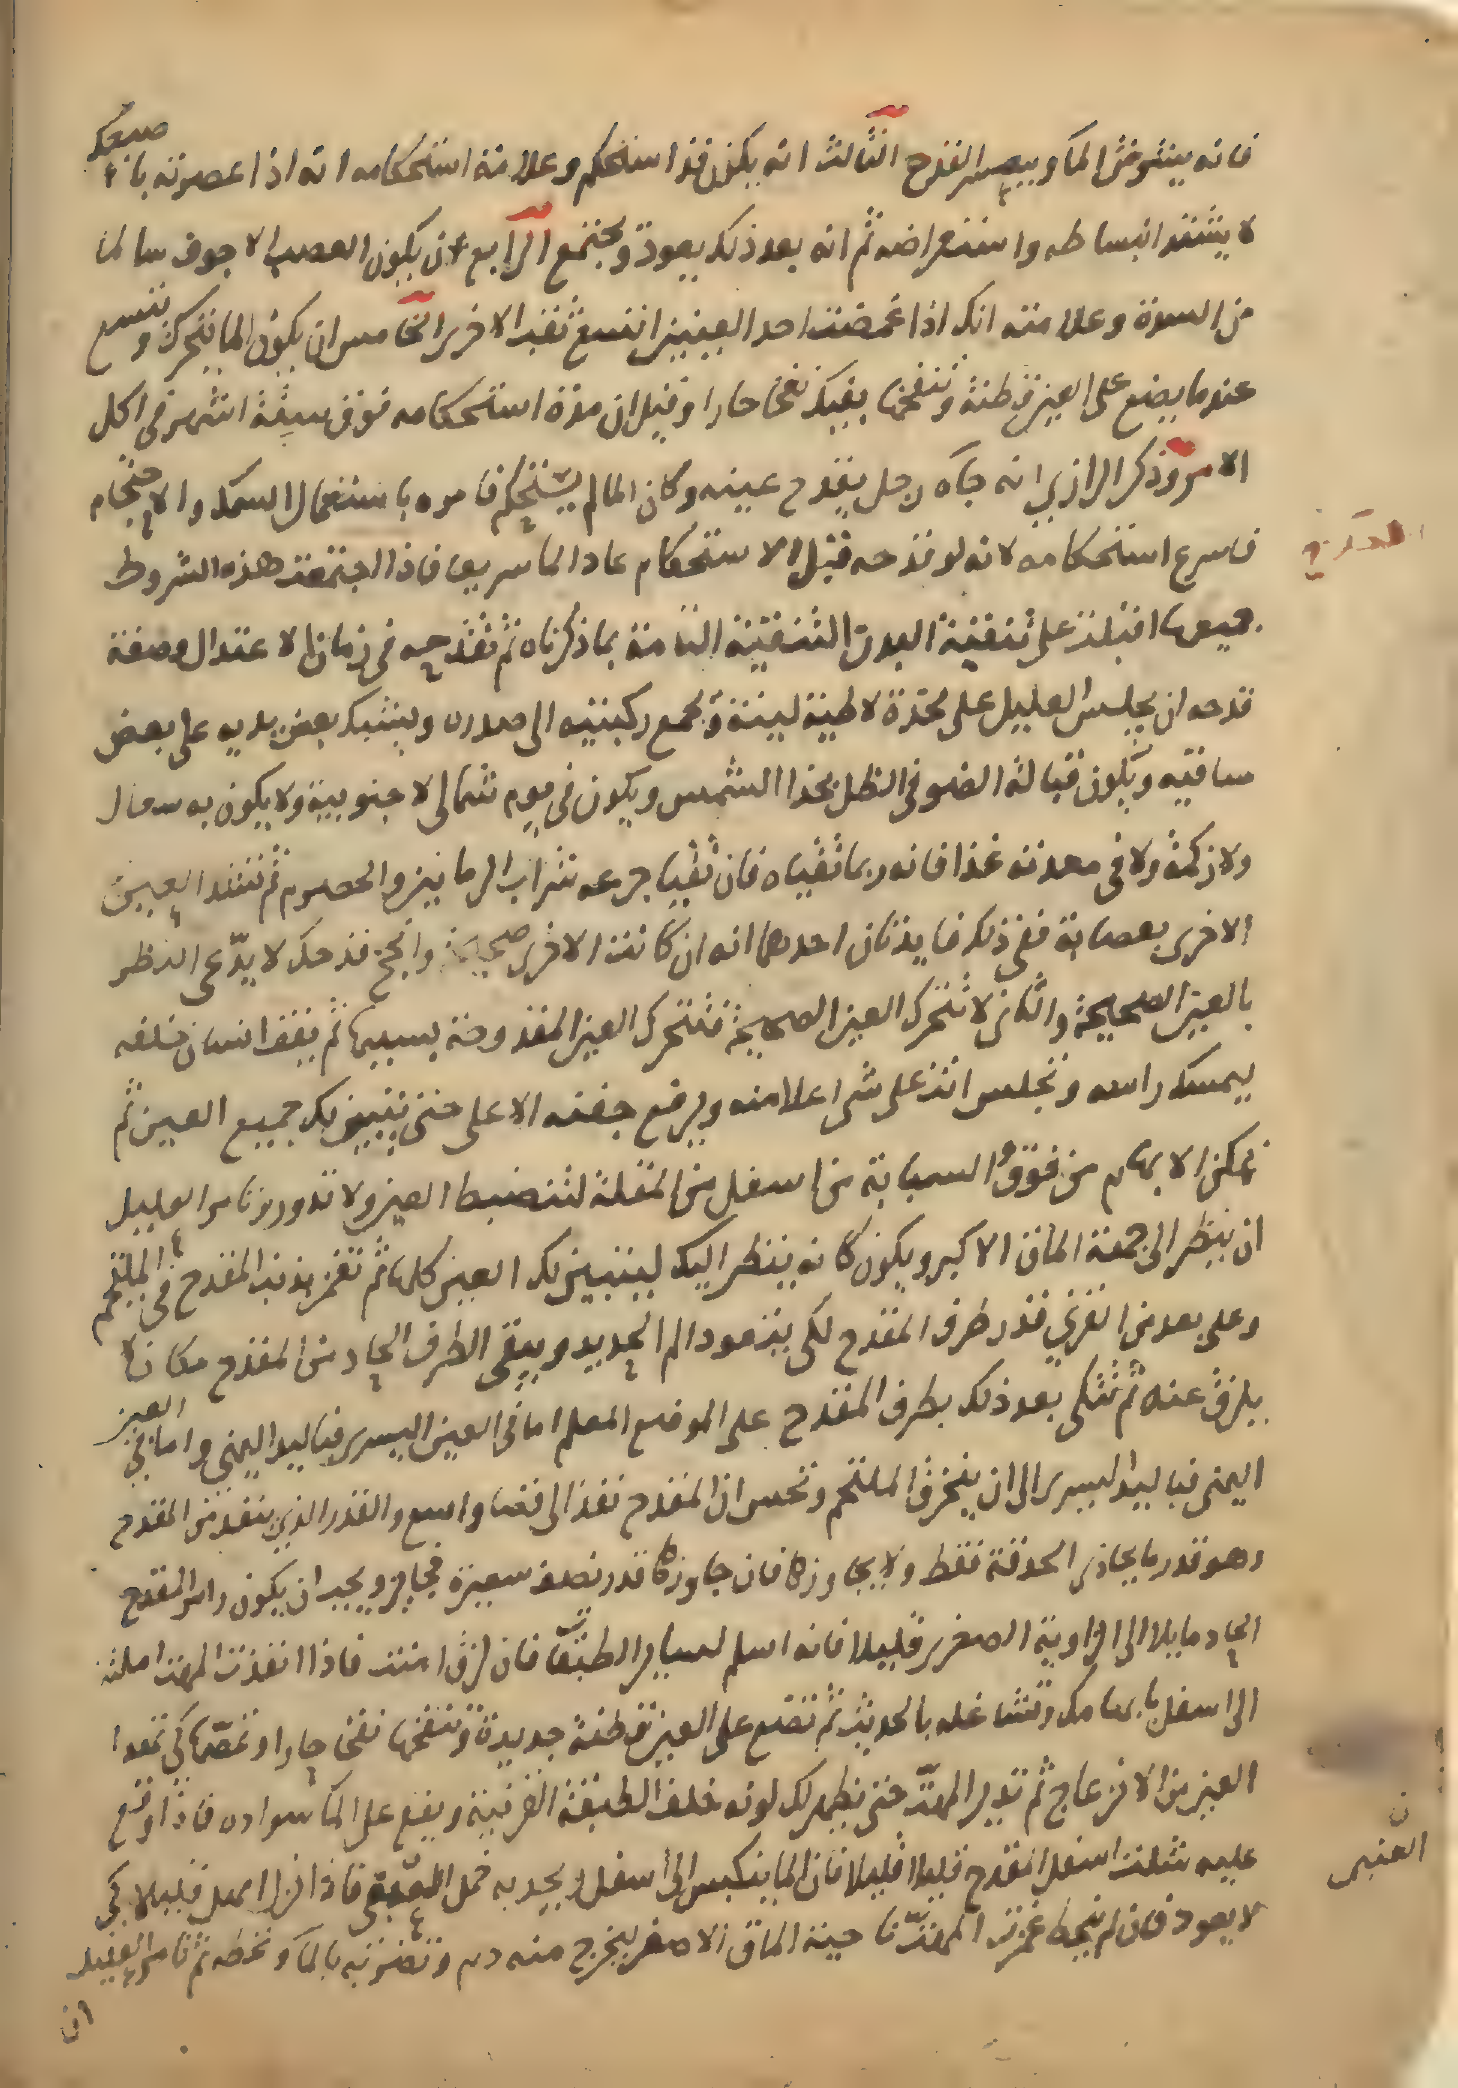 فانه يتشوش الما ويعسر القدح الثالث انه يكون قد استحكم وعلامة استحكامه انه اذا عصرته باصبعك
لا يشتد انبساطه واستعراضه ثم انه بعد ذلك يعود ويجتمع الرابع ان يكون العصب الاجوف سالما
من السدة وعلامته انك اذا غمضت احد العينين اتسع ثقب الاخرى الخامس ان يكون الما يتحرك ويتسع
عندما يضع على العين قطنة وتنفخها بفيك نفخا حارا وقيل ان مدة استحكامه فوق ستة اشهر في اكل
الامر وذكر الرازي انه جآه رجل يقدح عينه وكان الما لم يستحكم فامره باستعمال السمك والاحتجام
فاسرع استحكامه لانه لو قدحه قبل الاستحكام عاد الما سريعا فاذا اجتمعت هذه الشروط
جميعها اقبلت على تنقية البدن التنقية التامة بما ذكرناه ثم تقدحه في زمان الاعتدال وصفة
قدحه ان يجلس العليل على مخدة لاطية لينة ويجمع ركبتيه الى صدره ويشبك بعض يديه على بعض
ساقيه ويكون قبالة الضو في الظل بحذا الشمس ويكون في يوم شمالي لا جنوبية ولا يكون به سعال
ولا زكمة ولا في معدته غذا فانه ربما تقياه فان تقيا جرعه شراب الرمانين والحصرم ثم تشد العين
الاخرى بعصابة ففي ذلك فايدتان احدهما انه ان كانت الاخرى صحيحة وانجح قدحك لا يدّعي النظر
بالعين الصحيحة والثاني لا تتحرك العين الصحيحة فتتحرك العين المقدوحة بسببها ثم يقف انسان خلفه
يمسك راسه وتجلس انت على شي اعلا منه ويرفع جفنه الاعلى حتى يتبين لك جميع العين ثم
تمكن الابهام من فوق والسبابة من اسفل من المقلة لتنضبط العين ولا تدور وتامر العليل
ان ينظر الى جهة الماق الاكبر ويكون كانه ينظر اليك ليتبين لك العين كلها ثم تغمز بذنب المقدح في الملتحم
وعلى بعد من القرني قدر طرف المقدح لكي يتعود الم الحديد ويبقى الطرف الحاد من المقدح مكانا لا
يلزق عنه ثم تتكى بعد ذلك بطرف المقدح على الموضع المعلم اما في العين اليسرى فباليد اليمنى واما في العين
اليمنى فباليد اليسرى الى ان ينخرق الملتحم وتحس ان المقدح نفذ الى فضا واسع والقدر الذي ينفد من المقدح
وهو قدر ما يحاذي الحدقة فقط ولا يجاوزها فان جاوزها قدر نصف شعيرة فجايز ويجب ان يكون راس المقدح
الحاد مايلا الى الزاوية الصغرى قليلا فانه اسلم لساير الطبقات فان لزق امنت فاذا انفذت المهت املته
الى اسفل بابهامك وتشاغله بالحديث ثم تضع على العين قطنة جديدة وتنفخها نفخا حارا وتمصها كي تهدا
العين من الانزعاج ثم تدير المهت حتى يظهر لك لونه خلف الطبقة القرنية ويقع على الما سواده فاذا وقع
عليه شلت اسفل المقدح قليلا قليلا فان الما ينكبس الى اسفل ويجذبه خمل فاذا انزل امهل قليلا كي
لا يعود فان لم ينحط غمزت المهت ناحية الماق الاصغر ليخرج منه دم وتضربه بالما وتحطه ثم تامر العليل
ان
العنبي